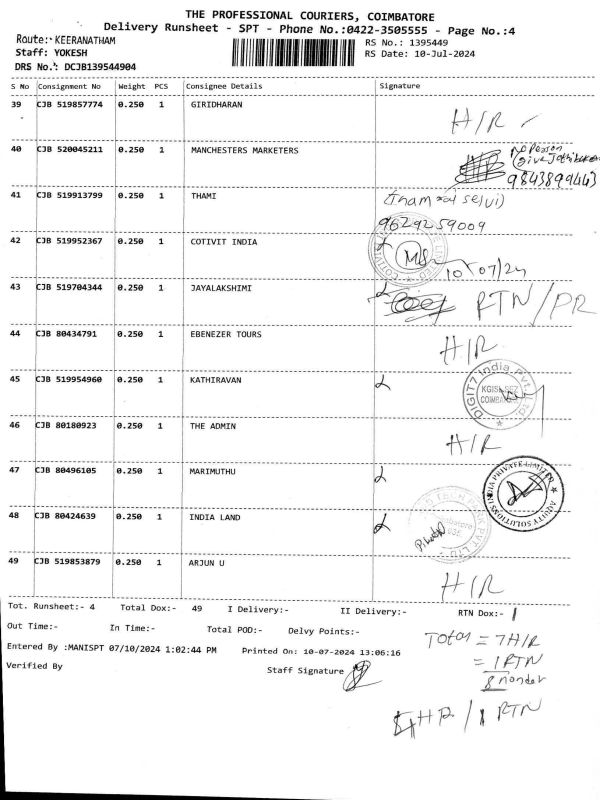 THE PROFESSIONAL COURIERS, COIMBATORE
Delivery Runsheet - SPT - Phone No.:0422-3505555 - Page No.:4
Route:- KEERANATHAM
RS No.: 1395449
Staff: YOKESH
RS Date: 10-Jul-2024
DRS No.: DCJB139544904
S No Consignment No Weight PCS Consignee Details Signature
39 CJB 519857774 0.250 1 GIRIDHARAN H/R
40 CJB 520045211 0.250 1 MANCHESTERS MARKETERS
9843899443
41 CJB 519913799 0.250 1 THAMI
9629259009
42 CJB 519952367 0.250 1 COTIVIT INDIA
10/07/24
43 CJB 519704344 0.250 1 JAYALAKSHIMI RTN/PR
44 CJB 80434791 0.250 1 EBENEZER TOURS H/R
45 CJB 519954960 0.250 1 KATHIRAVAN
DIGIT7 India Pvt. Ltd.
KGISL SEZ
46 CJB 80180923 0.250 1 THE ADMIN H/R
47 CJB 80496105 0.250 1 MARIMUTHU
AQUITY SOLUTIONS INDIA PRIVATE LIMITED
48 CJB 80424639 0.250 1 INDIA LAND
49 CJB 519853879 0.250 1 ARJUN U H/R
Tot. Runsheet:- 4 Total Dox:- 49 I Delivery:- II Delivery:- RTN Dox:- 1
Out Time:- In Time:- Total POD:- Delvy Points:-
Total = 7 H/R
Entered By :MANISPT 07/10/2024 1:02:44 PM Printed On: 10-07-2024 13:06:16
= 1 RTN
Verified By Staff Signature
8
HR / 1 RTN